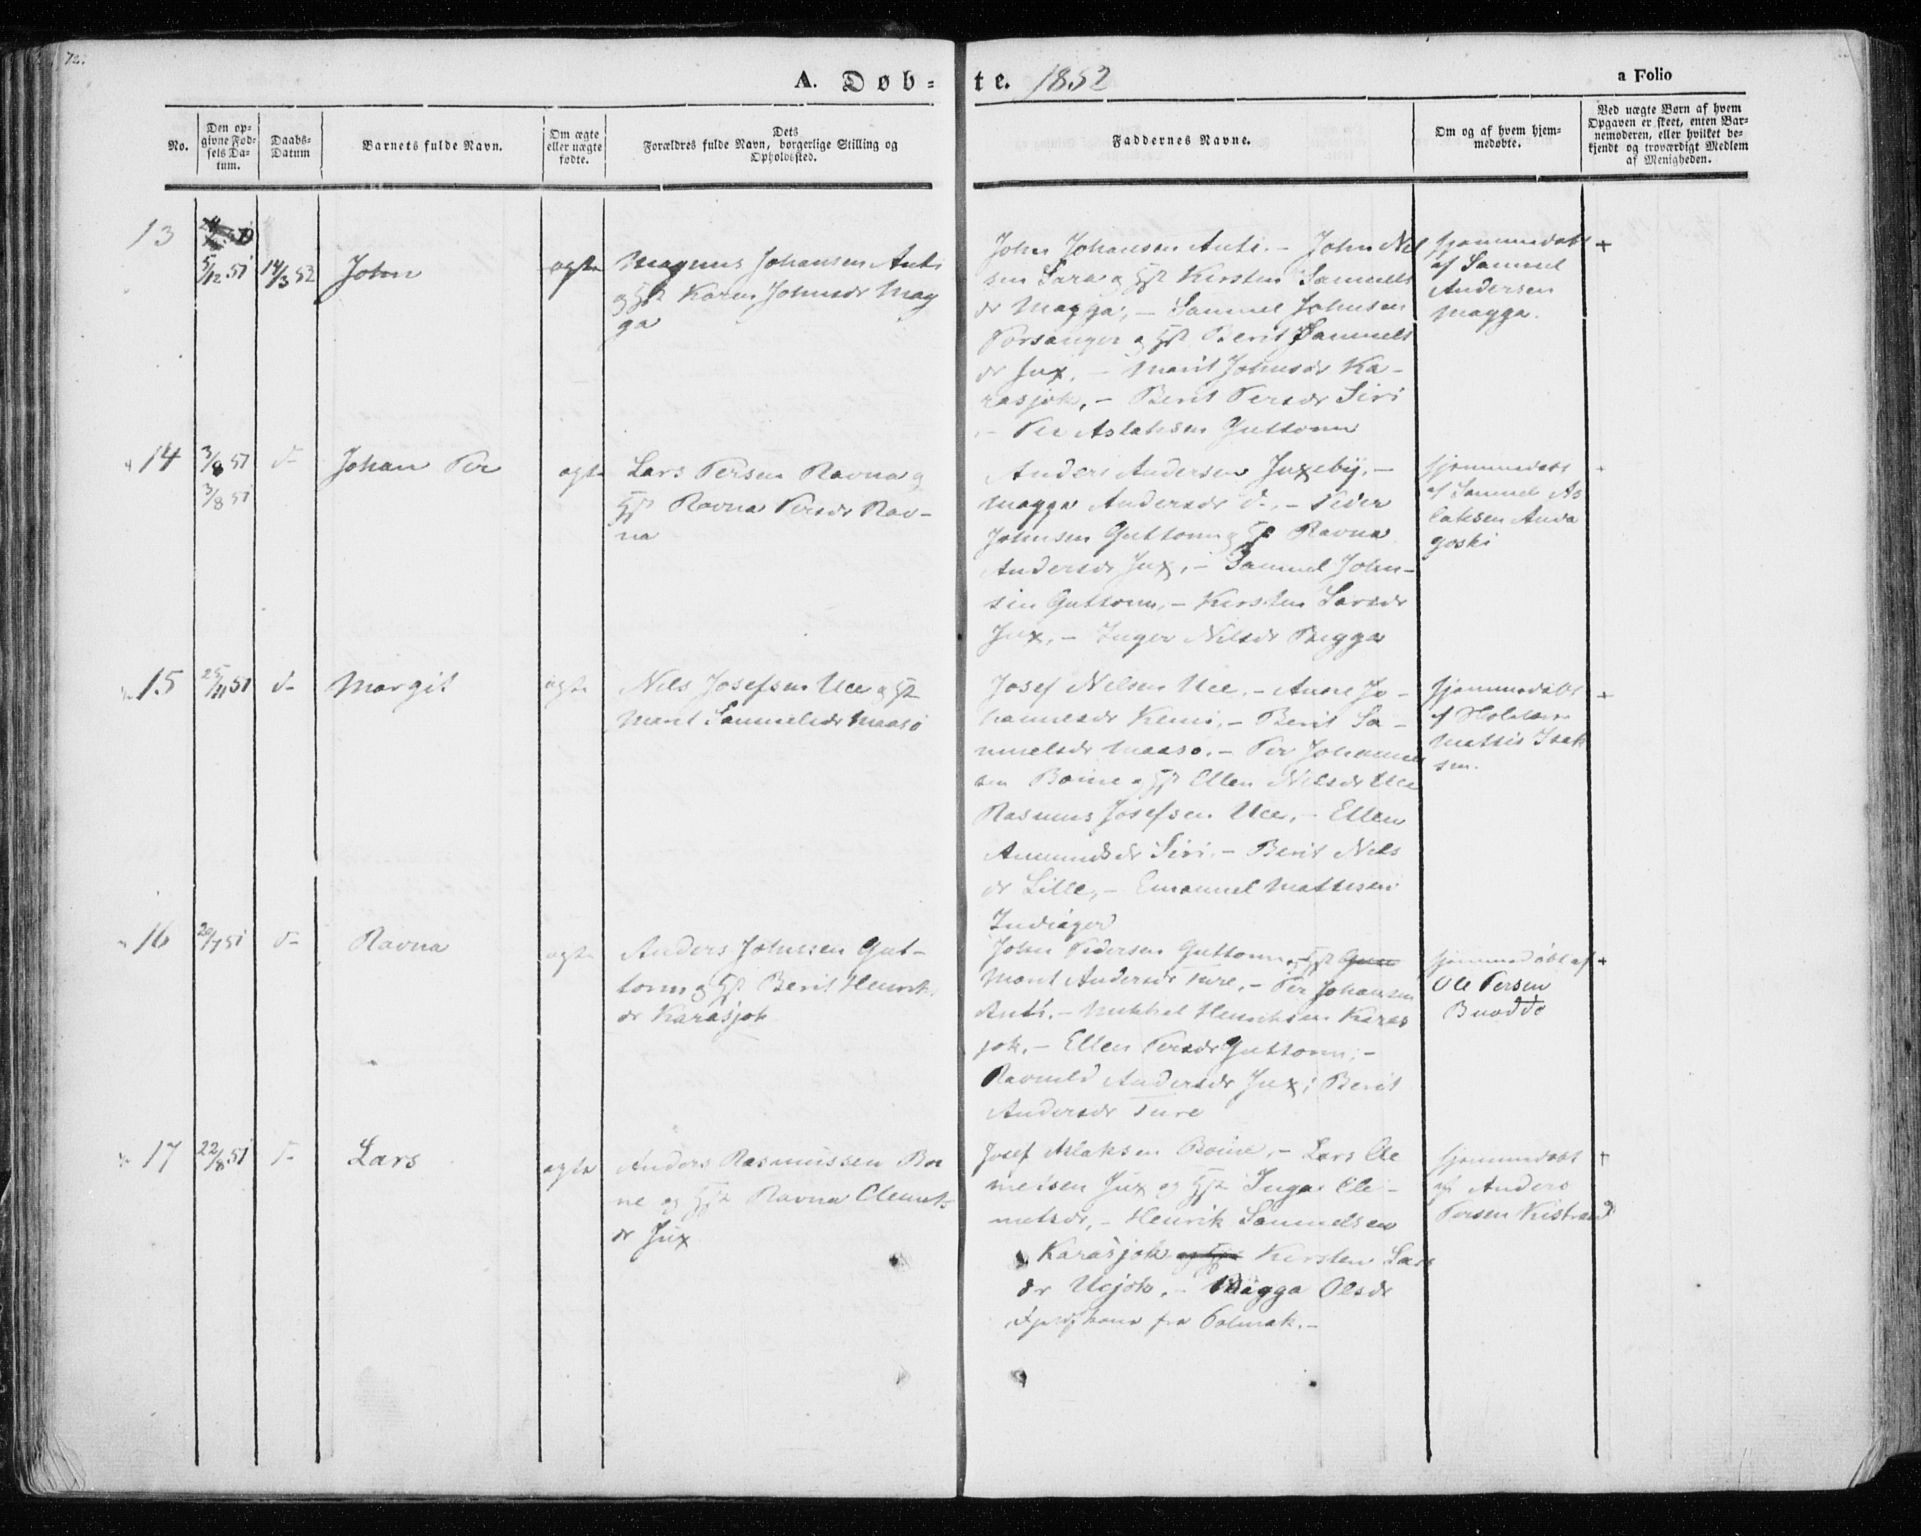 72.
A. Døb-
te. 1852
a Folio
No.
Den op-
givne Fød-
sels Da-
tum.
Daabs-
Datum
Barnets fulde Navn.
Om ægte
eller uægte
fødte.
Dets
Forældres fulde Navn, borgerlige Stilling og
Opholdssted.
Faddernes Navne.
Om og af hvem hjem-
medøbte.
Ved uægte Børn af hvem
Opgaven er skeet, enten Bar-
nemoderen, eller hvilket be-
kjendt og troværdigt Medlem
af Menigheden.
13
5/12 51
14/3 52
John
ægte
Magnus Johansen Anti
og Hst Karen Johnsdr Mag
ga
John Johansen Anti. - John Nil
sen Sara og Hst Kirsten Samuels
dr Magga, - Samuel Johnsen
Porsanger og Hst Berit Samuels
dr Jux, - Marit Johnsdr Ka-
rasjok, - Berit Persdr Siri
- Per Aslaksen Guttorm
hjemmedøbt
af Samuel
Andersen
Magga.
+
14
3/8 51
3/8 51
d-
Johan Per
ægte
Lars Persen Ravna og
Hst Ravna Persdr Rav-
na
Anders Andersen Juxeby, -
Magga Andersdr d., - Peder
Johnsen Guttorm og Hst Ravna
Andersdr Jux, - Samuel John-
sen Guttorm, - Kirsten Larsdr
Jux, - Inger Nilsdr Pugga
hjemmedøbt
af Samuel As
laksen Anda
goski
+
15
25/11 51
d-
Margit
ægte
Nils Josefsen Uce og Hst
Marit Samuelsdr Maasø
Josef Nilsen Uce, - Anne Jo-
hannesdr Kemi, - Berit Sa-
muelsdr Maasø, - Per Johannes
sen Boine og Hst Ellen Nilsdr Uce
Rasmus Josefsen Uce, - Ellen
Amundsdr Siri, - Berit Nils
dr Lille, - Emanuel Mathisen
Indiager
hjemmedøbt
af Holder
Mattis Isak
sen.
+
16
20/7 51
d-
Ravna
ægte
Anders Johnssen Gut-
torm og Hst Berit Henriks
dr Karasjok
John Pedersen Guttorm og Hst
Marit Andersdr Ture, - Per Johansen
Anti, - Mikkel Henriksen Karas
jok, - Ellen Persdr Guttorm, -
Ravneld Andersdr Jux; Berit
Andersdr Ture
hjemmedøbt af
Ole Persen
Buodde
+
17
22/8 51
d-
Lars
ægte
Anders Rasmussen Boi
ne og Hst Ravna Clemets
dr Jux
Josef Aslaksen Boine, - Lars Cle
metsen Jux og Hst Inga Cle-
metsdr, - Henrik Samuelsen
Karasjok og Hst Kirsten Lars
dr Ucjok, - Magga Olsdr
fra Polmak. -
hjemmedøbt
af Anders
Persen Kistrand
+